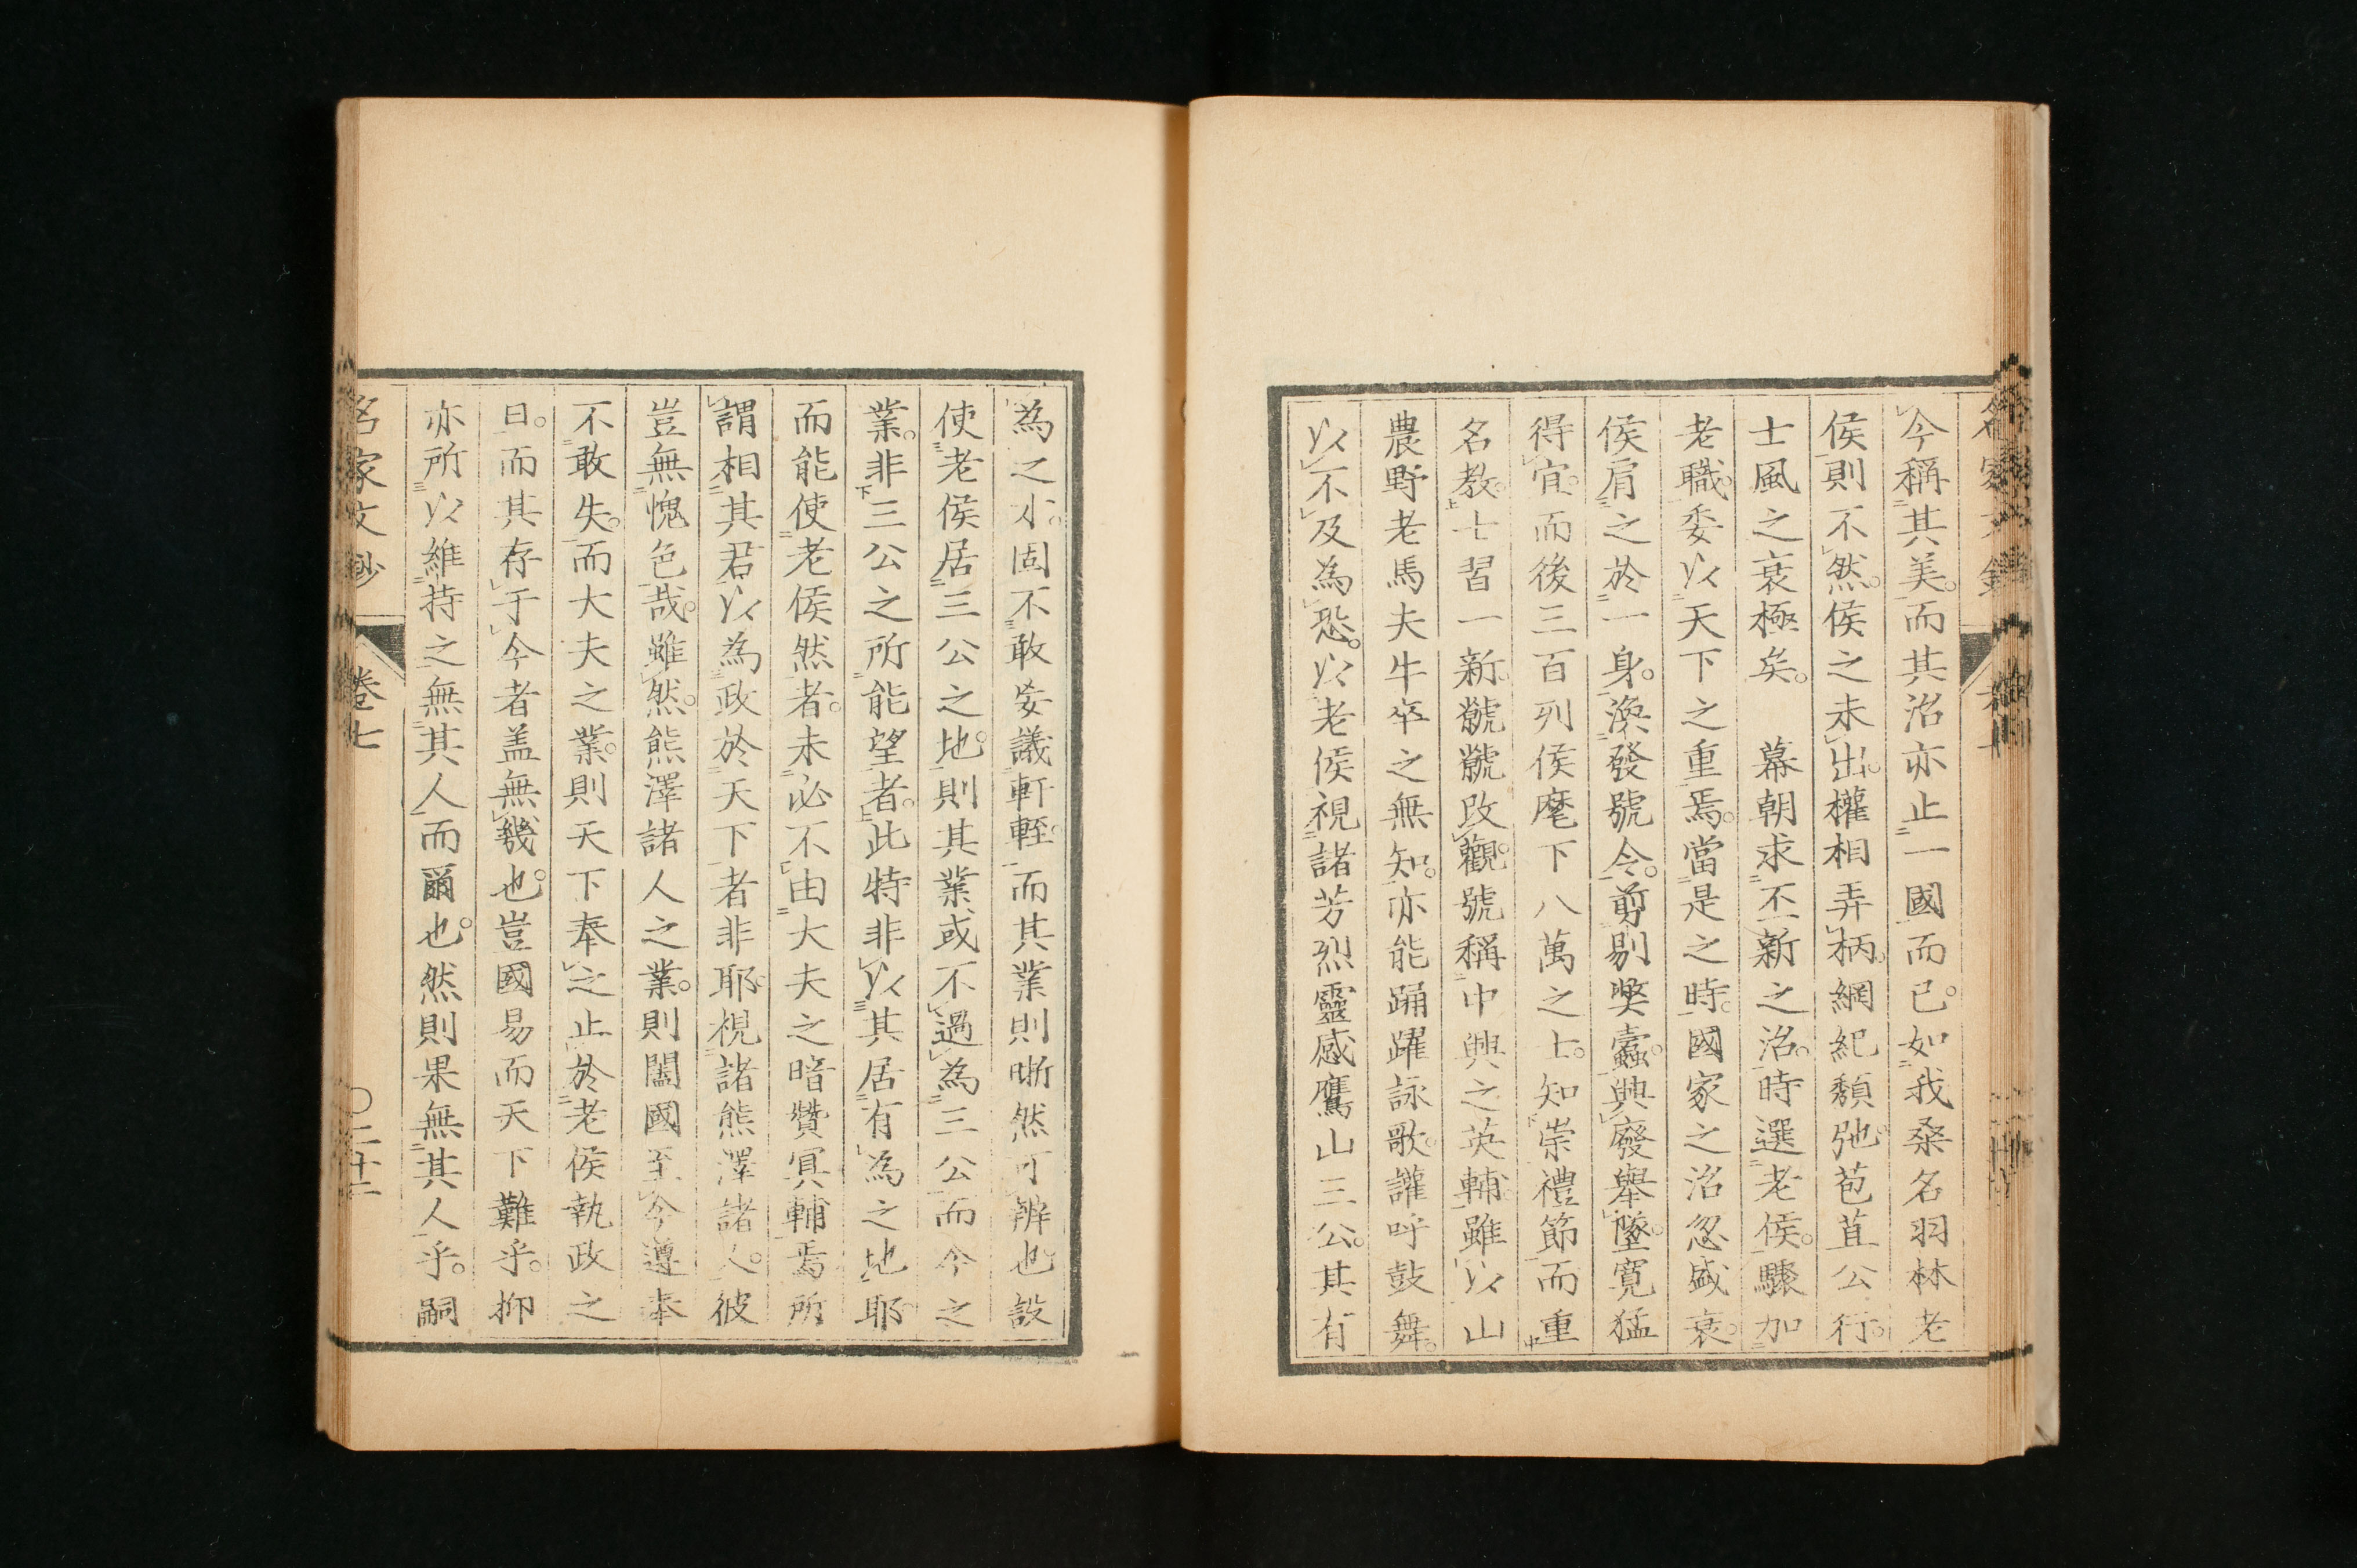 今稱其美。而其治亦止一國而已。如我桑名羽林老
侯則不然。侯之未出。權相弄柄。綱紀頽弛。苞苴公行。
士風之衰極矣。　幕朝求不一新之治。時選老侯。驟加
老職。委以天下之重焉。當是之時。國家之治忽盛衰。
侯肩之於一身。渙發號令。剪剔弊蠹。興廢舉墜。寬猛
得宜。而後三百列侯麾下八萬之士。知崇禮節而重
名教。士習一新。觥觥改觀。號稱中興之英輔。雖以山
農野老馬夫牛卒之無知。亦能踊躍詠歌。讙呼鼓舞。
以不及為恐。以老侯視諸芳烈靈感鷹山三公。其有
為之才。固不敢妄議軒輊。而其業則晣然可辨也設
使老侯居三公之地。則其業或不過為三公而今之
業。非三公之所能望者。此特非以其居有為之地耶
而能使老侯然者。未必不由大夫之暗贊冥輔焉所
謂相其君以為政於天下者非耶。視諸熊澤諸人。彼
豈無愧色哉。雖然。熊澤諸人之業。則闔國至今遵奉
不敢失。而大夫之業。則天下奉之止於老侯執政之
日。而其存于今者盖無幾也。豈國易而天下難乎。抑
亦所以維持之無其人而爾也。然則果無其人乎。嗣
名家文鈔
卷七
〇二十二